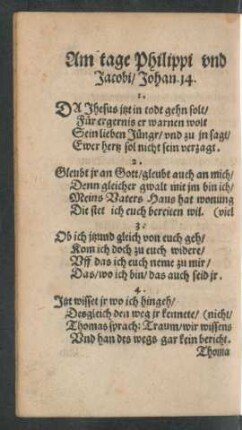 Am tage Philippi vnd
Jacobi/ Johan. 14.
1.
DA Jhesus jtzt in todt gehn solt/
Für ergernis er warnen wolt
Sein lieben Jünger/ vnd zu jn sagt/
Ewer hertz sol nicht sein verzagt.
2.
Gleubt jr an Gott/ gleubt auch an mich/
Denn gleicher gwalt mit jm bin ich/
Meins Vaters Haus hat wonung
Die stet ich euch bereiten wil. (viel
3.
Ob ich jtzund gleich von euch geh/
Kom ich doch zu euch widere/
Vff das ich euch neme zu mir/
Das/ wo ich bin/ das auch seid jr.
4.
Jtzt wisset jr wo ich hingeh/
Desgleich den weg jr kennete/ (nicht/
Thomas sprach: Traum/ wir wissens
Vnd han des wegs gar kein bericht.
Thoma